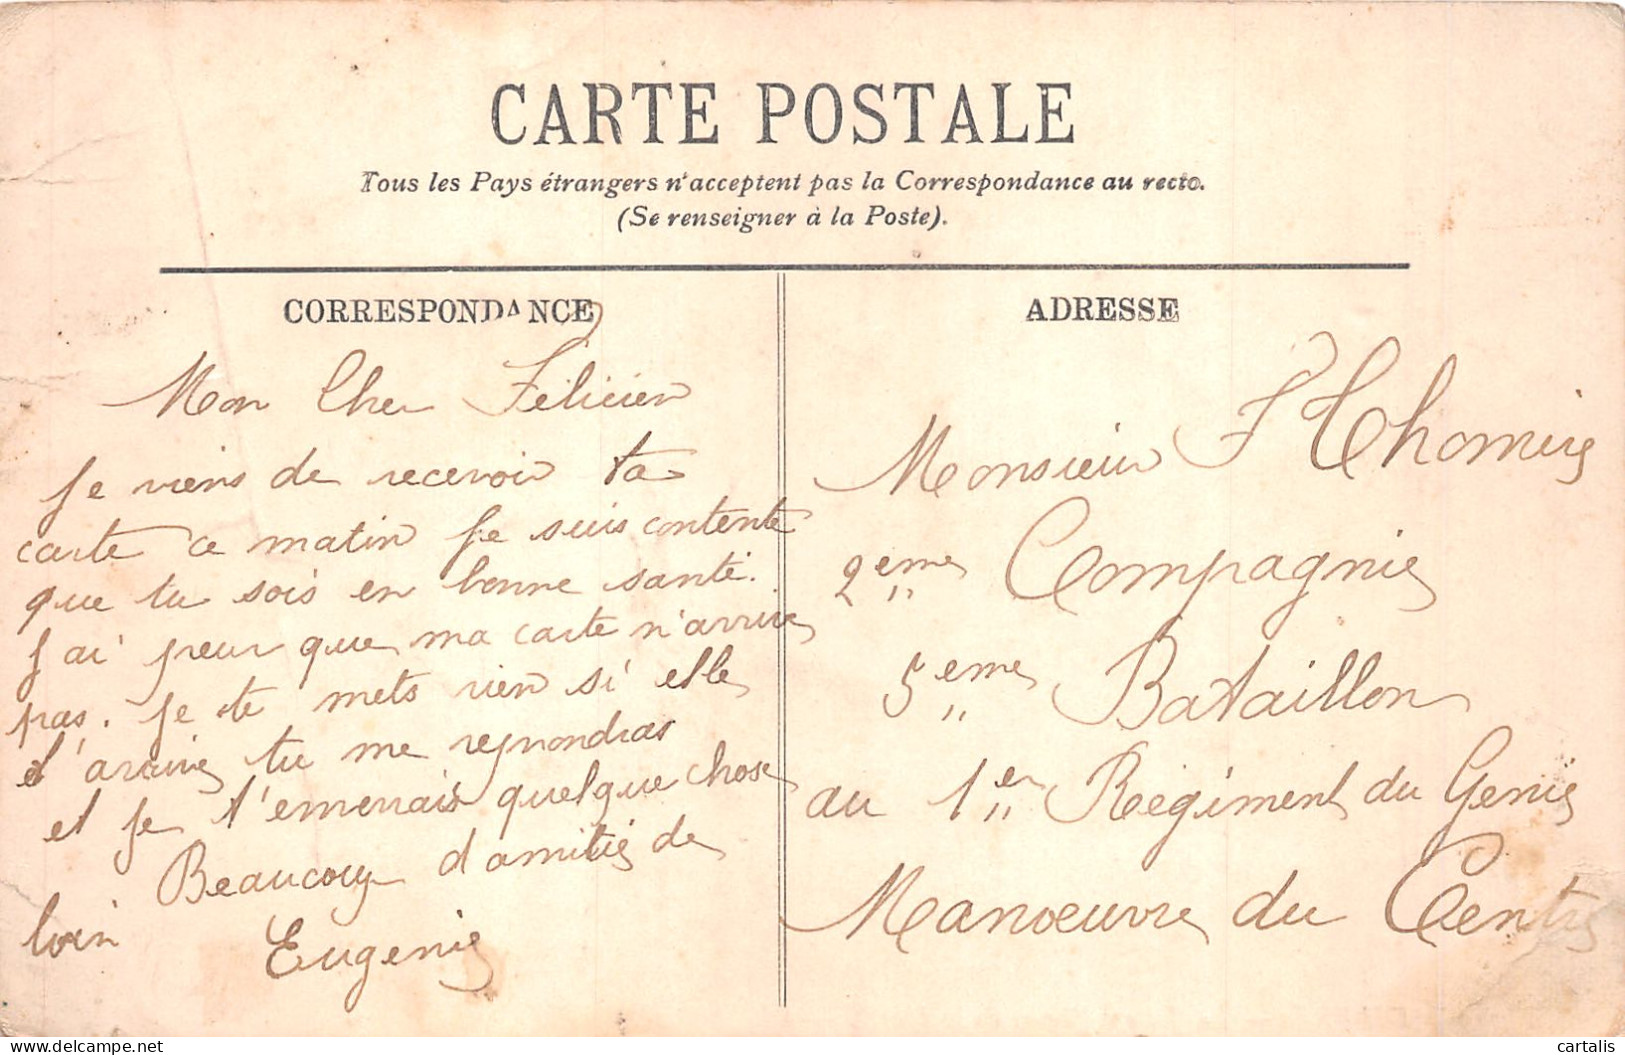 CARTE POSTALE
Tous les Pays étrangers n'acceptent pas la Correspondance au recto.
(Se renseigner à la Poste).
CORRESPONDANCE
Mon Cher Félicien
Je viens de recevoir ta
carte ce matin Je suis contente
que tu sois en bonne santé.
J'ai peur que ma carte n'arrive
pas. Je te mets rien si elle
t'arrive tu me repondras
et Je t'emenais quelque chose
Beaucoup d'amitié de
loin
Eugenie
ADRESSE
Monsieur F Thomire
2ème Compagnie
5ème Bataillon
au 1er Régiment du Genie
Manoeuvre du Centre
www.delcampe.net
cartalis